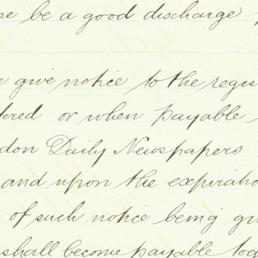 be a good discharge
give notice to the regis
or when payable
don Daily Newspapers
and upon the expiratio
of such notice being gi
shall become payable tog